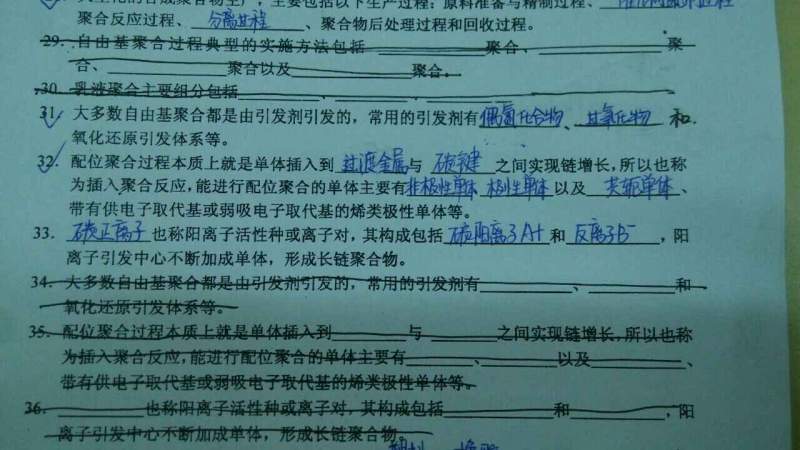 大工业化的合成聚合物生产,主要包括以下生产过程:原料准备与精制过程、
聚合反应过程、分离过程、聚合物后处理过程和回收过程。
29. 自由基聚合过程典型的实施方法包括 聚合、 聚
合、 聚合以及 聚合。
30. 乳液聚合主要组分包括 、 、
31. 大多数自由基聚合都是由引发剂引发的,常用的引发剂有偶氮化合物、过氧化物 和
氧化还原引发体系等。
32. 配位聚合过程本质上就是单体插入到 过渡金属 与 碳键 之间实现链增长,所以也称
为插入聚合反应,能进行配位聚合的单体主要有非极性单体、极性单体 以及 共轭单体、
带有供电子取代基或弱吸电子取代基的烯类极性单体等。
33. 碳正离子 也称阳离子活性种或离子对,其构成包括 碳阳离子A+ 和 反离子B-,阳
离子引发中心不断加成单体,形成长链聚合物。
34. 大多数自由基聚合都是由引发剂引发的,常用的引发剂有 、 和
氧化还原引发体系等。
35. 配位聚合过程本质上就是单体插入到 与 之间实现链增长,所以也称
为插入聚合反应,能进行配位聚合的单体主要有 、 以及 、
带有供电子取代基或弱吸电子取代基的烯类极性单体等。
36. 也称阳离子活性种或离子对,其构成包括 和 ,阳
离子引发中心不断加成单体,形成长链聚合物。